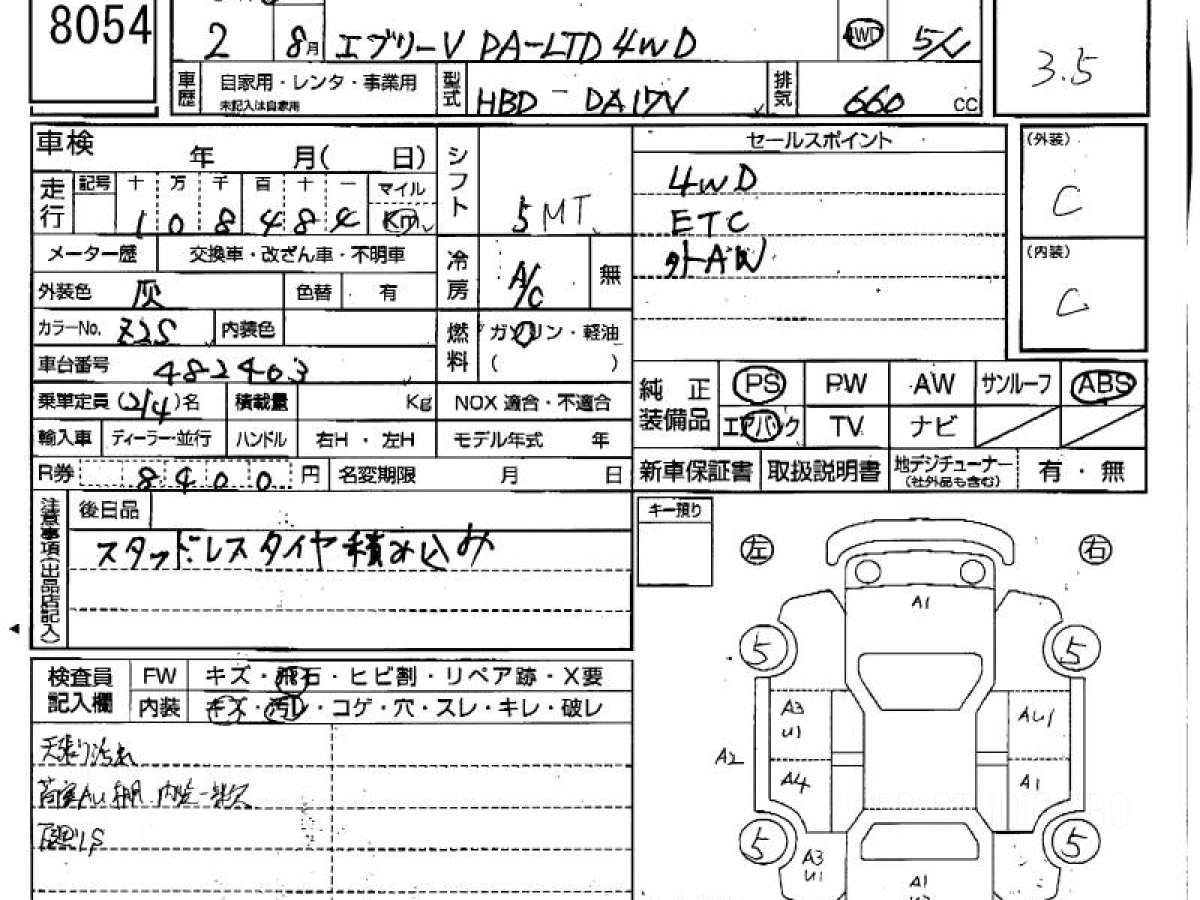 8054
2 8月 エブリーV PA-LTD 4WD 4WD 5/
車歴 自家用・レンタ・事業用 未記入は自家用 型式 HBD - DA17V 排気 660 CC
3.5
車検 年 月( 日)
走行 記号 十 万 千 百 十 一 マイル
1 0 8 4 8 4 Km
メーター歴 交換車・改ざん車・不明車
外装色 灰 色替 有
カラーNo. Z2S 内装色
車台番号 482403
乗車定員(2/4)名 積載量 Kg
輸入車 ディーラー・並行 ハンドル 右H・左H
R券 8400 円 名変期限 月 日
シフト 5MT
冷房 A/C 無
燃料 ガソリン・軽油
( )
NOX 適合・不適合
モデル年式 年
セールスポイント
4WD
ETC
外AW
(外装)
C
(内装)
C
純正装備品 PS PW AW サンルーフ ABS
エアバック TV ナビ
新車保証書 取扱説明書 地デジチューナー (社外品も含む) 有・無
注意事項(出品店記入)
後日品
スタッドレスタイヤ積み込み
検査員記入欄 FW キズ・飛石・ヒビ割・リペア跡・X要
内装 キズ・汚れ・コゲ・穴・スレ・キレ・破レ
天張り汚れ
キー預り
左 右
A1
5 5
A3
U1
AU1
A2
A4 A1
5 5
A3
U1
A1